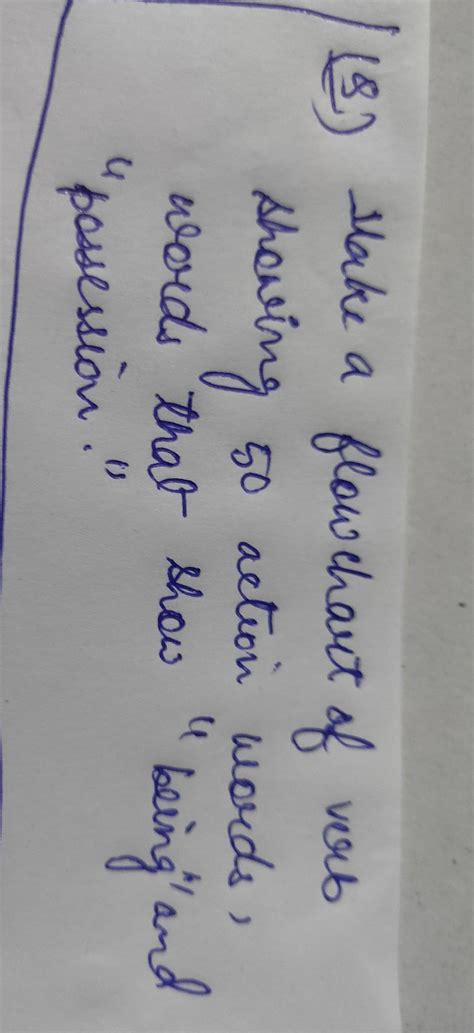 (8) Make a flowchart of verb
showing 50 action words,
words that show "being" and
"possession."